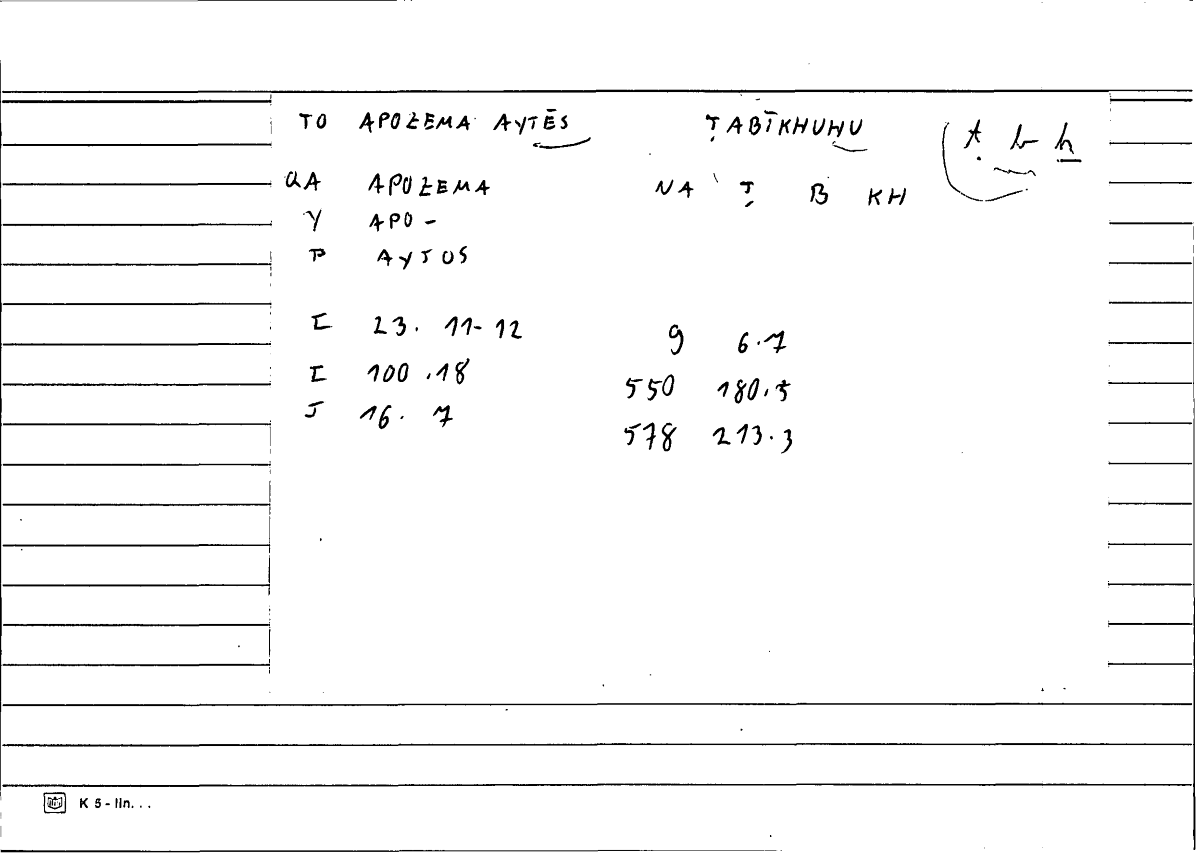 TO APOZEMA AYTĒS ṬABĪKHUHU ṭ b ḫ
QA APOZEMA NA Ṭ B KH
Y APO -
P AYTOS
I 23. 11-12 9 6.7
I 100.18 550 180.5
J 16. 7 578 213.3
K 5 - lin. . .